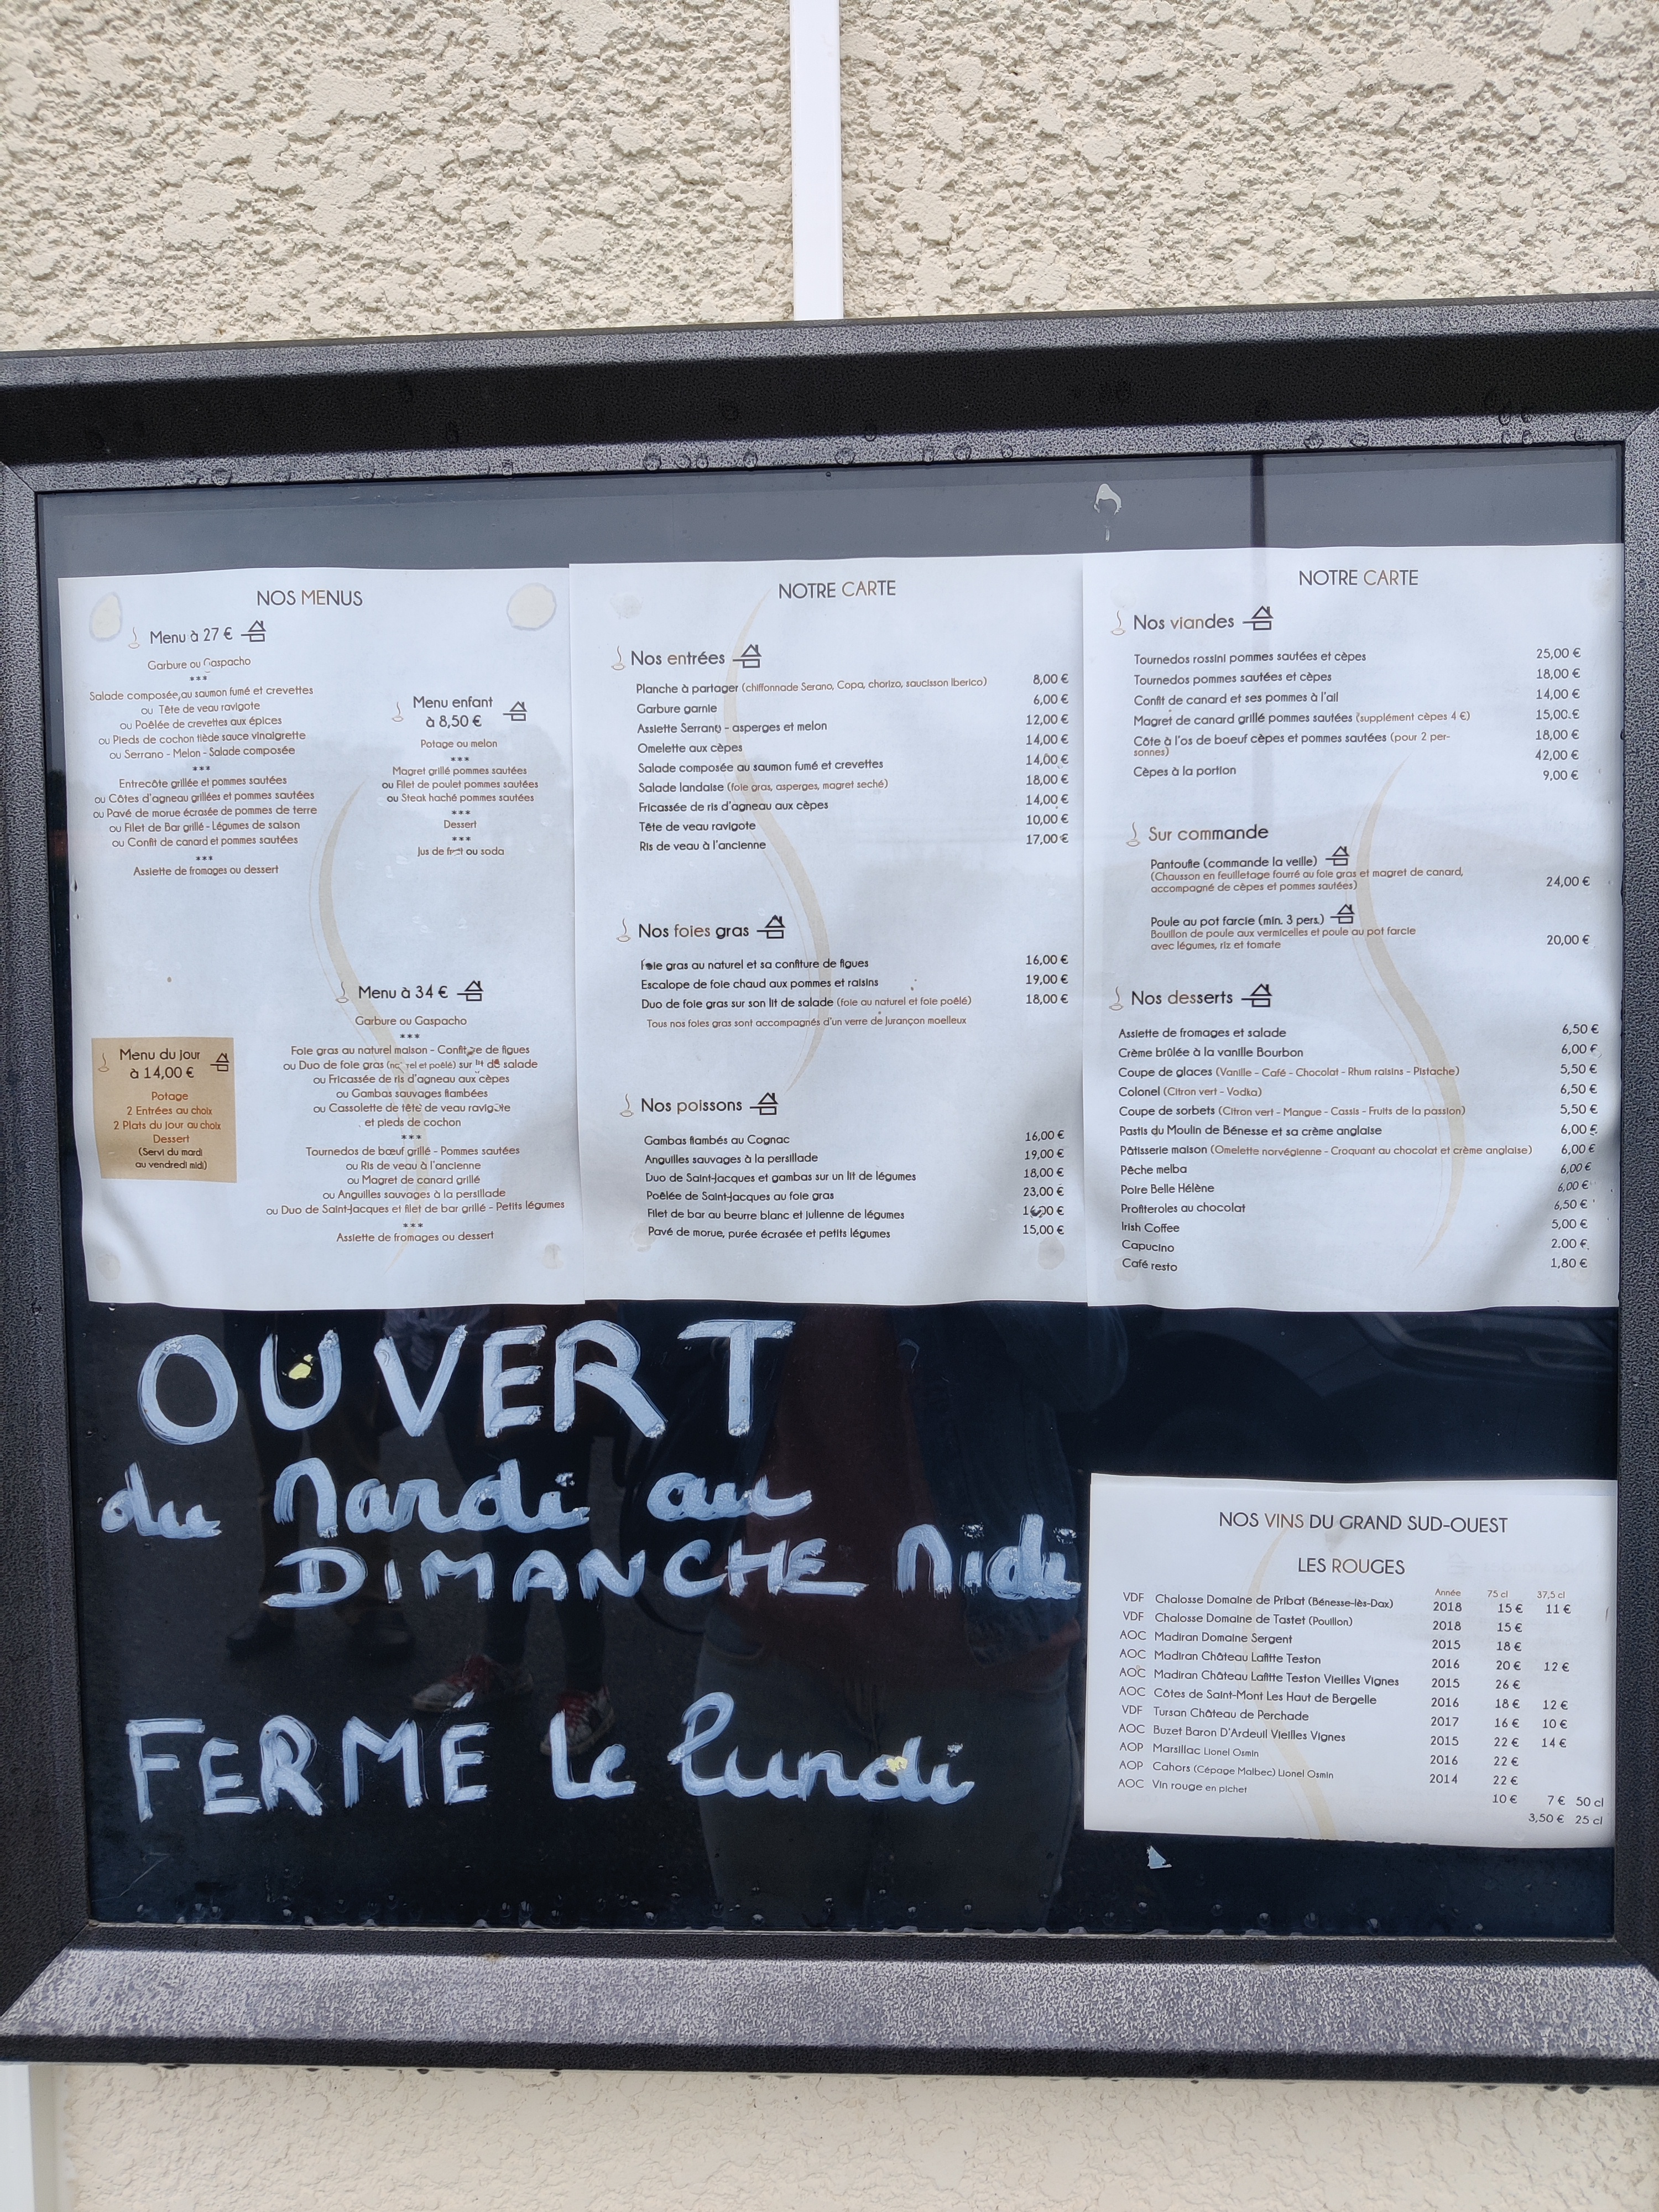 NOS MENUS
Menu à 27 €
Garbure ou Gaspacho
***
Salade composée au saumon fumé et crevettes
ou Tête de veau ravigote
ou Poêlée de crevettes aux épices
ou Pieds de cochon tiède sauce vinaigrette
ou Serrano - Melon - Salade composée
***
Entrecôte grillée et pommes sautées
ou Côtes d'agneau grillées et pommes sautées
ou Pavé de morue écrasée de pommes de terre
ou Filet de Bar grillé - Légumes de saison
ou Confit de canard et pommes sautées
***
Assiette de fromages ou dessert
Menu enfant
à 8,50 €
Potage ou melon
***
Magret grillé pommes sautées
ou Filet de poulet pommes sautées
ou Steak haché pommes sautées
***
Dessert
***
Jus de fruit ou soda
Menu du jour
à 14,00 €
Potage
2 Entrées au choix
2 Plats du jour au choix
Dessert
(Servi du mardi
au vendredi midi)
Menu à 34 €
Garbure ou Gaspacho
***
Foie gras au naturel maison - Confiture de figues
ou Duo de foie gras (naturel et poêlé) sur lit de salade
ou Fricassée de ris d'agneau aux cèpes
ou Gambas sauvages flambées
ou Cassolette de tête de veau ravigote
et pieds de cochon
***
Tournedos de bœuf grillé - Pommes sautées
ou Ris de veau à l'ancienne
ou Magret de canard grillé
ou Anguilles sauvages à la persillade
ou Duo de Saint-Jacques et filet de bar grillé - Petits légumes
***
Assiette de fromages ou dessert
NOTRE CARTE
Nos entrées
Planche à partager (chiffonnade Serano, Copa, chorizo, saucisson Iberico) 8,00 €
Garbure garnie 6,00 €
Assiette Serrano - asperges et melon 12,00 €
Omelette aux cèpes 14,00 €
Salade composée au saumon fumé et crevettes 14,00 €
Salade landaise (foie gras, asperges, magret seché) 18,00 €
Fricassée de ris d'agneau aux cèpes 14,00 €
Tête de veau ravigote 10,00 €
Ris de veau à l'ancienne 17,00 €
Nos foies gras
Foie gras au naturel et sa confiture de figues 16,00 €
Escalope de foie chaud aux pommes et raisins 19,00 €
Duo de foie gras sur son lit de salade (foie au naturel et foie poêlé) 18,00 €
Tous nos foies gras sont accompagnés d'un verre de Jurançon moelleux
Nos poissons
Gambas flambés au Cognac 16,00 €
Anguilles sauvages à la persillade 19,00 €
Duo de Saint-Jacques et gambas sur un lit de légumes 18,00 €
Poêlée de Saint-Jacques au foie gras 23,00 €
Filet de bar au beurre blanc et julienne de légumes
Pavé de morue, purée écrasée et petits légumes 15,00 €
NOTRE CARTE
Nos viandes
Tournedos rossini pommes sautées et cèpes 25,00 €
Tournedos pommes sautées et cèpes 18,00 €
Confit de canard et ses pommes à l'ail 14,00 €
Magret de canard grillé pommes sautées (supplément cèpes 4 €) 15,00 €
Côte à l'os de boeuf cèpes et pommes sautées (pour 2 per- 18,00 €
sonnes) 42,00 €
Cèpes à la portion 9,00 €
Sur commande
Pantoufle (commande la veille)
(Chausson en feuilletage fourré au foie gras et magret de canard,
accompagné de cèpes et pommes sautées) 24,00 €
Poule au pot farcie (min. 3 pers.)
Bouillon de poule aux vermicelles et poule au pot farcie
avec légumes, riz et tomate 20,00 €
Nos desserts
Assiette de fromages et salade 6,50 €
Crème brûlée à la vanille Bourbon 6,00 €
Coupe de glaces (Vanille - Café - Chocolat - Rhum raisins - Pistache) 5,50 €
Colonel (Citron vert - Vodka) 6,50 €
Coupe de sorbets (Citron vert - Mangue - Cassis - Fruits de la passion) 5,50 €
Pastis du Moulin de Bénesse et sa crème anglaise 6,00 €
Pâtisserie maison (Omelette norvégienne - Croquant au chocolat et crème anglaise) 6,00 €
Pêche melba 6,00 €
Poire Belle Hélène 6,00 €
Profiteroles au chocolat 6,50 €
Irish Coffee 5,00 €
Capucino 2.00 €
Café resto 1,80 €
OUVERT
du Mardi au
DIMANCHE Midi
FERMÉ Le lundi
NOS VINS DU GRAND SUD-OUEST
LES ROUGES
Année 75 cl 37,5 cl
VDF Chalosse Domaine de Pribat (Bénesse-lès-Dax) 2018 15 € 11 €
VDF Chalosse Domaine de Tastet (Pouillon) 2018 15 €
AOC Madiran Domaine Sergent 2015 18 €
AOC Madiran Château Lafitte Teston 2016 20 € 12 €
AOC Madiran Château Lafitte Teston Vieilles Vignes 2015 26 €
AOC Côtes de Saint-Mont Les Haut de Bergelle 2016 18 € 12 €
VDF Tursan Château de Perchade 2017 16 € 10 €
AOC Buzet Baron D'Ardeuil Vieilles Vignes 2015 22 € 14 €
AOP Marsillac Lionel Osmin 2016 22 €
AOP Cahors (Cépage Malbec) Lionel Osmin 2014 22 €
AOC Vin rouge en pichet 10 € 7 € 50 cl
3,50 € 25 cl